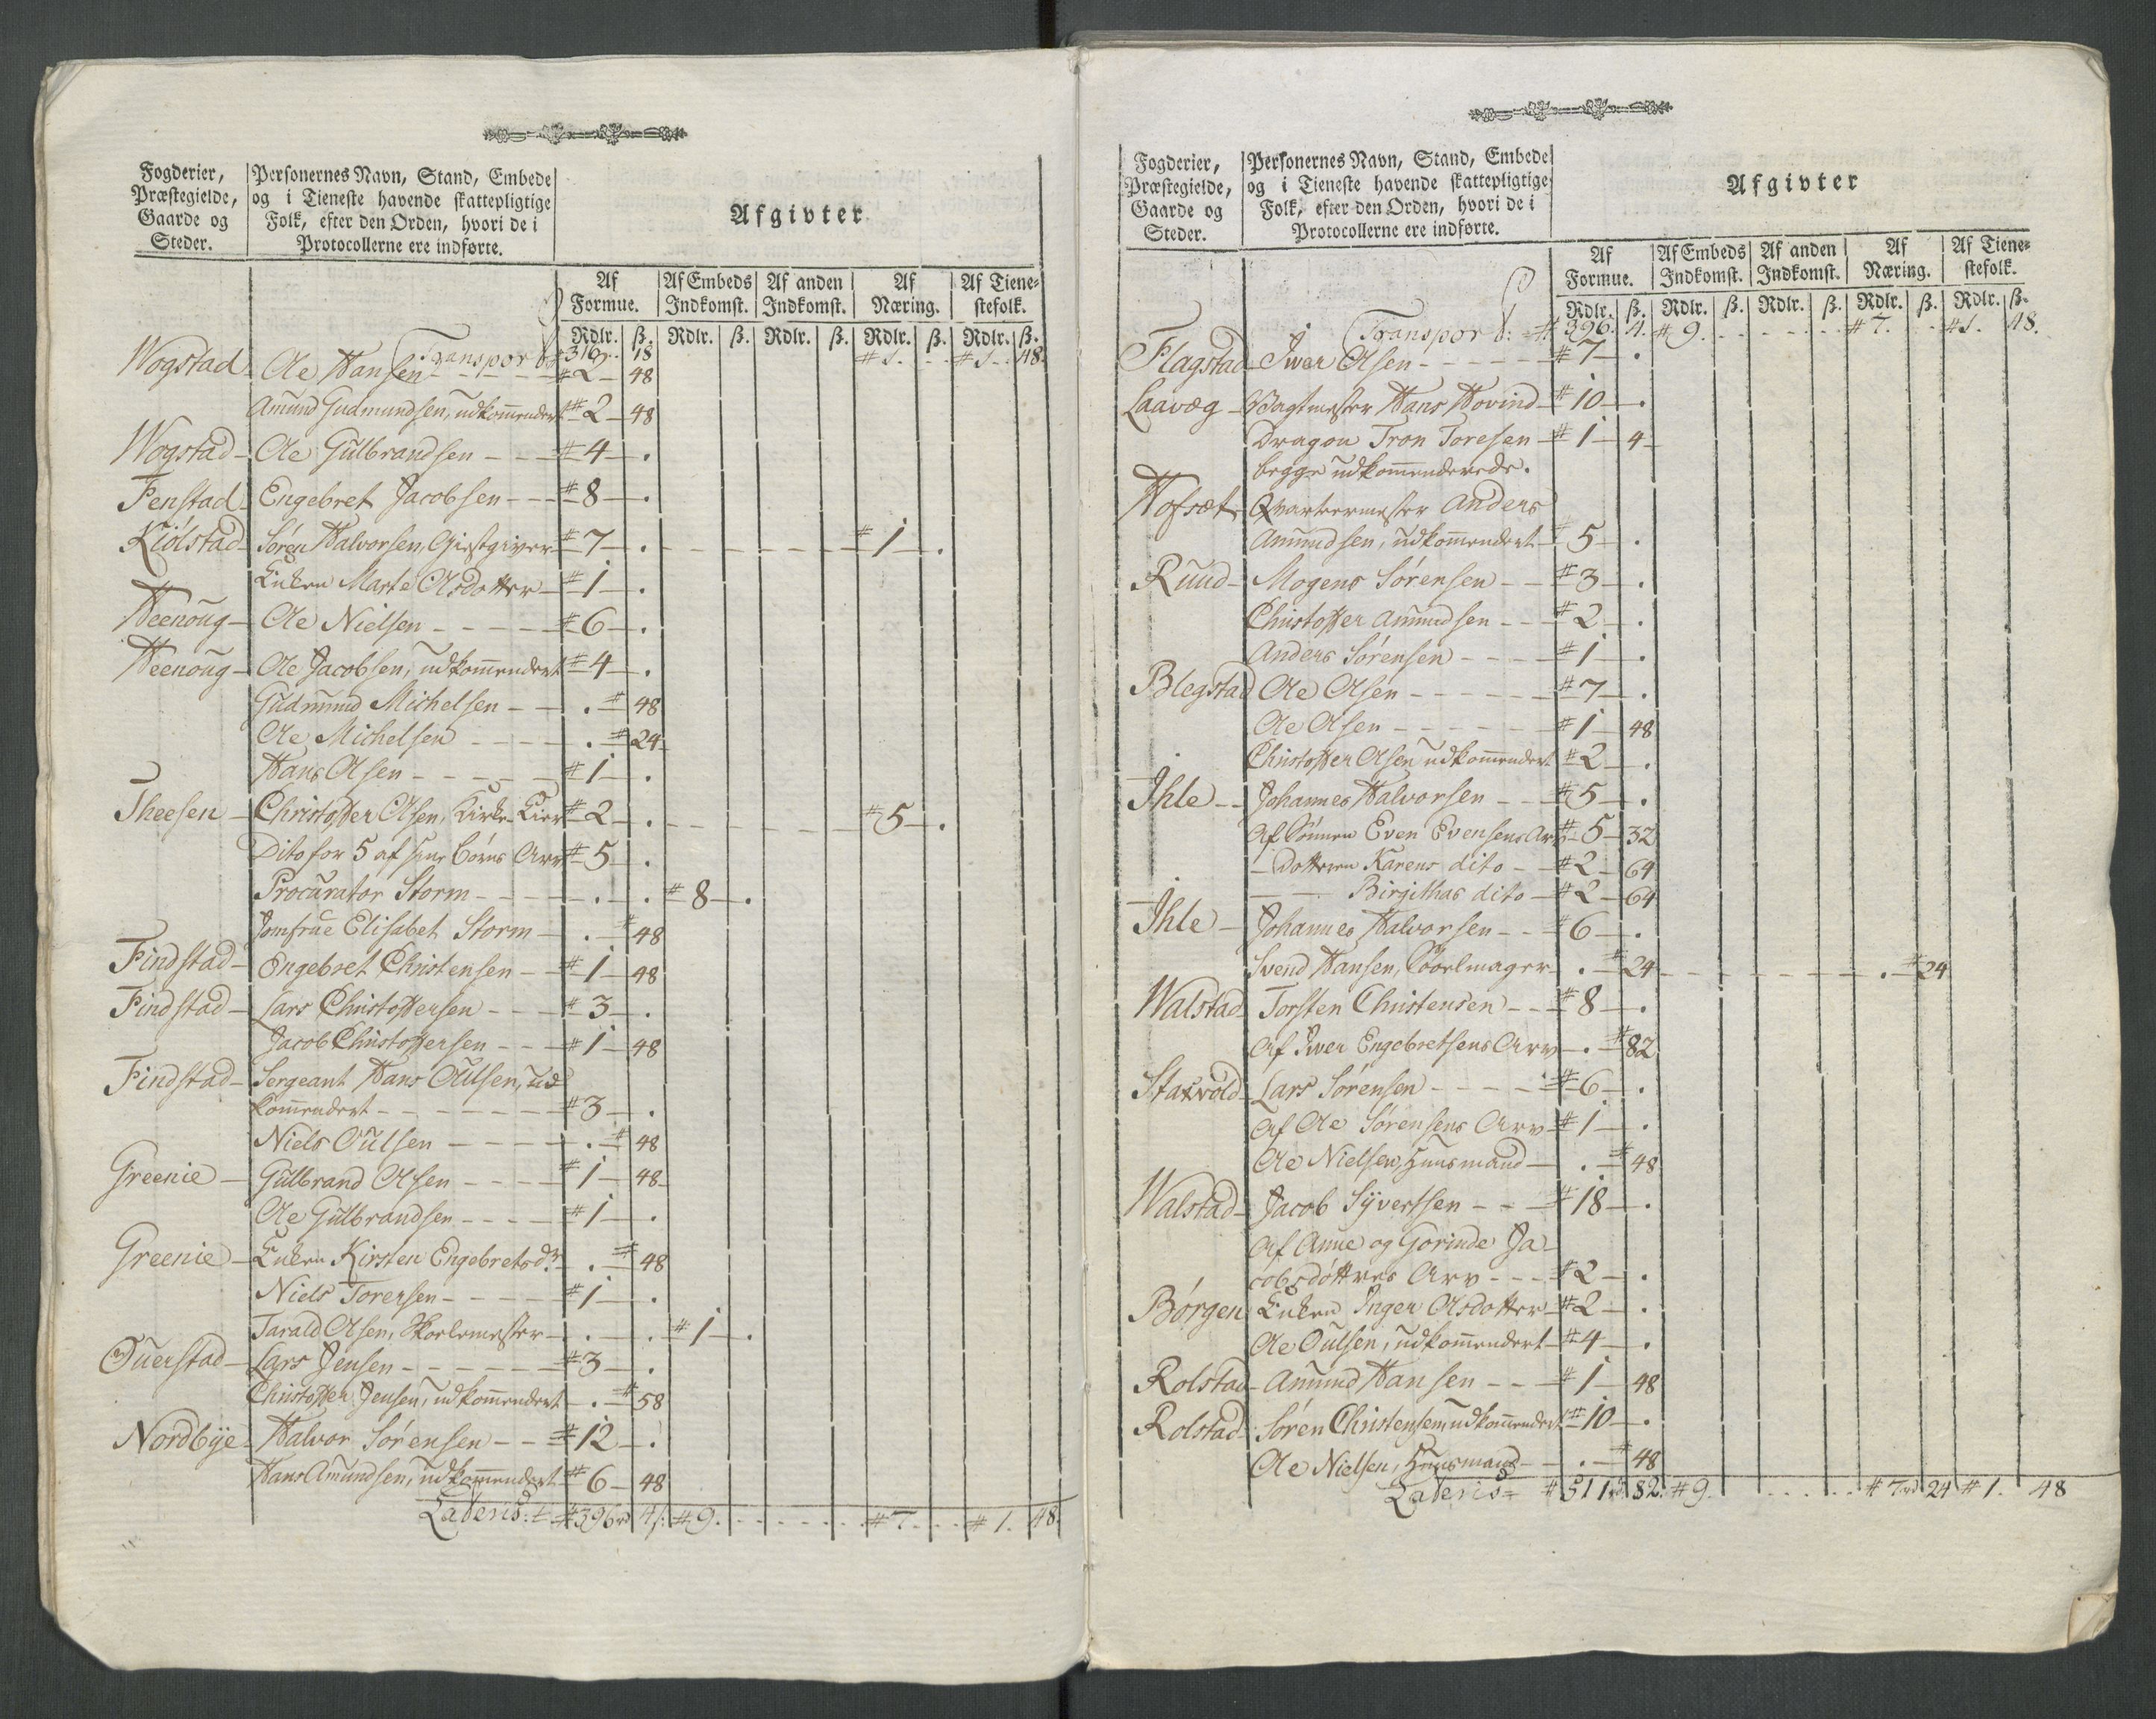 Fogderier, Præstegielde, Gaarde og Steder. | Personernes Navn, Stand, Embede og i Tieneste havende skattepligtige Folk, efter den Orden, hvori de i Protocollerne ere indførte. | Afgivter
Af Formue. | Af Embeds Indkomst. | Af anden Indkomst. | Af Næring. | Af Tienestefolk.
Rdlr. | ß. | Rdlr. | ß. | Rdlr. | ß. | Rdlr. | ß. | Rdlr. | ß.
Transport # 18 # 1 # 1 48
Wogstad Ole Hansen # 2 48
Amund Gudmundsen, udkommendert # 2 48
Wogstad Ole Gulbrandsen # 4 .
Fenstad Engebret Jacobsen # 8 .
Kiølstad Søren Halvorsen, Giestgiver # 7 . # 1 .
Enken Marte Olsdotter # 1 .
Heenoug Ole Nielsen # 6 .
Heenoug Ole Jacobsen, udkommendert # 4 .
Gudmund Michelsen . # 48
Ole Michelsen . # 24
Hans Olsen # 1 .
Theesen Christoffer Olsen, # 2 . # 5 .
Dito for 5 af sine Børns Arv # 5 .
Procurator Storm . . # 8 .
Jomfrue Elisabet Storm . # 48
Findstad Engebret Christensen # 1 48
Findstad Lars Christoffersen # 3 .
Jacob Christoffersen # 1 48
Findstad Sergeant Hans Oulsen, ud
kommendert # 3 .
Niels Oulsen . # 48
Greenie Gulbrand Olsen # 1 48
Ole Gulbrandsen # 1 .
Greenie Enken Kirsten Engebretsdr . # 48
Niels Toresen # 1 .
Tarald Olsen, Skoelemester . . # 1 .
Ouerstad Lars Jensen # 3 .
Christoffer Jensen, udkommendert . # 58
Nordbye Halvor Sørensen # 12 .
Hans Amundsen, udkommendert # 6 48
Lateris # 396 4 # 9 # 7 # 1. 48
Fogderier, Præstegielde, Gaarde og Steder. | Personernes Navn, Stand, Embede og i Tieneste havende skattepligtige Folk, efter den Orden, hvori de i Protocollerne ere indførte. | Afgivter
Af Formue. | Af Embeds Indkomst. | Af anden Indkomst. | Af Næring. | Af Tienestefolk.
Rdlr. | ß. | Rdlr. | ß. | Rdlr. | ß. | Rdlr. | ß. | Rdlr. | ß.
Transport # 396. 4. # 9. # 7. # 1. 48.
Flagstad Iver Olsen # 7 .
Laavæg Vagtmester Hans Hovind # 10 .
Dragon Tron Toresen # 1 4
begge udkommenderede.
Hofsæt Qvarteermester Anders
Amundsen, udkommendert # 5 .
Ruud Mogens Sørensen # 3 .
Christoffer Amundsen # 2 .
Anders Sørensen # 1 .
Blegstad Ole Olsen # 7 .
Ole Olsen # 1 48
Christoffer Olsen udkommendert # 2 .
Ihle Johannes Halvorsen # 5 .
Af Sønnen Even Evensens Arv # 5 32
Dotteren Karens dito # 2 64
Birgithas dito # 2 64
Ihle Johannes Halvorsen # 6 .
Svend Hansen, # 24 . # 24
Walstad Torsten Christensen # 8 .
Af Iver Engebretsens Arv . # 82
Staxrold Lars Sørensen # 6 .
Af Ole Sørensens Arv # 1 .
Ole Nielsen, Huusmand . # 48
Walstad Jacob Syvertsen # 18 .
Af Anne og Gorinde Ja-
cobsdøttres Arv # 2 .
Børgen Enken Inger Olsdotter # 2 .
Ole Oulsen, udkommendert # 4 .
Rolstad Amund Hansen # 1 48
Rolstad Søren Christensen, udkommendert # 10 .
Ole Nielsen, Huusmand . # 48
Lateris # 511 82 # 9. # 7 24 # 1. 48